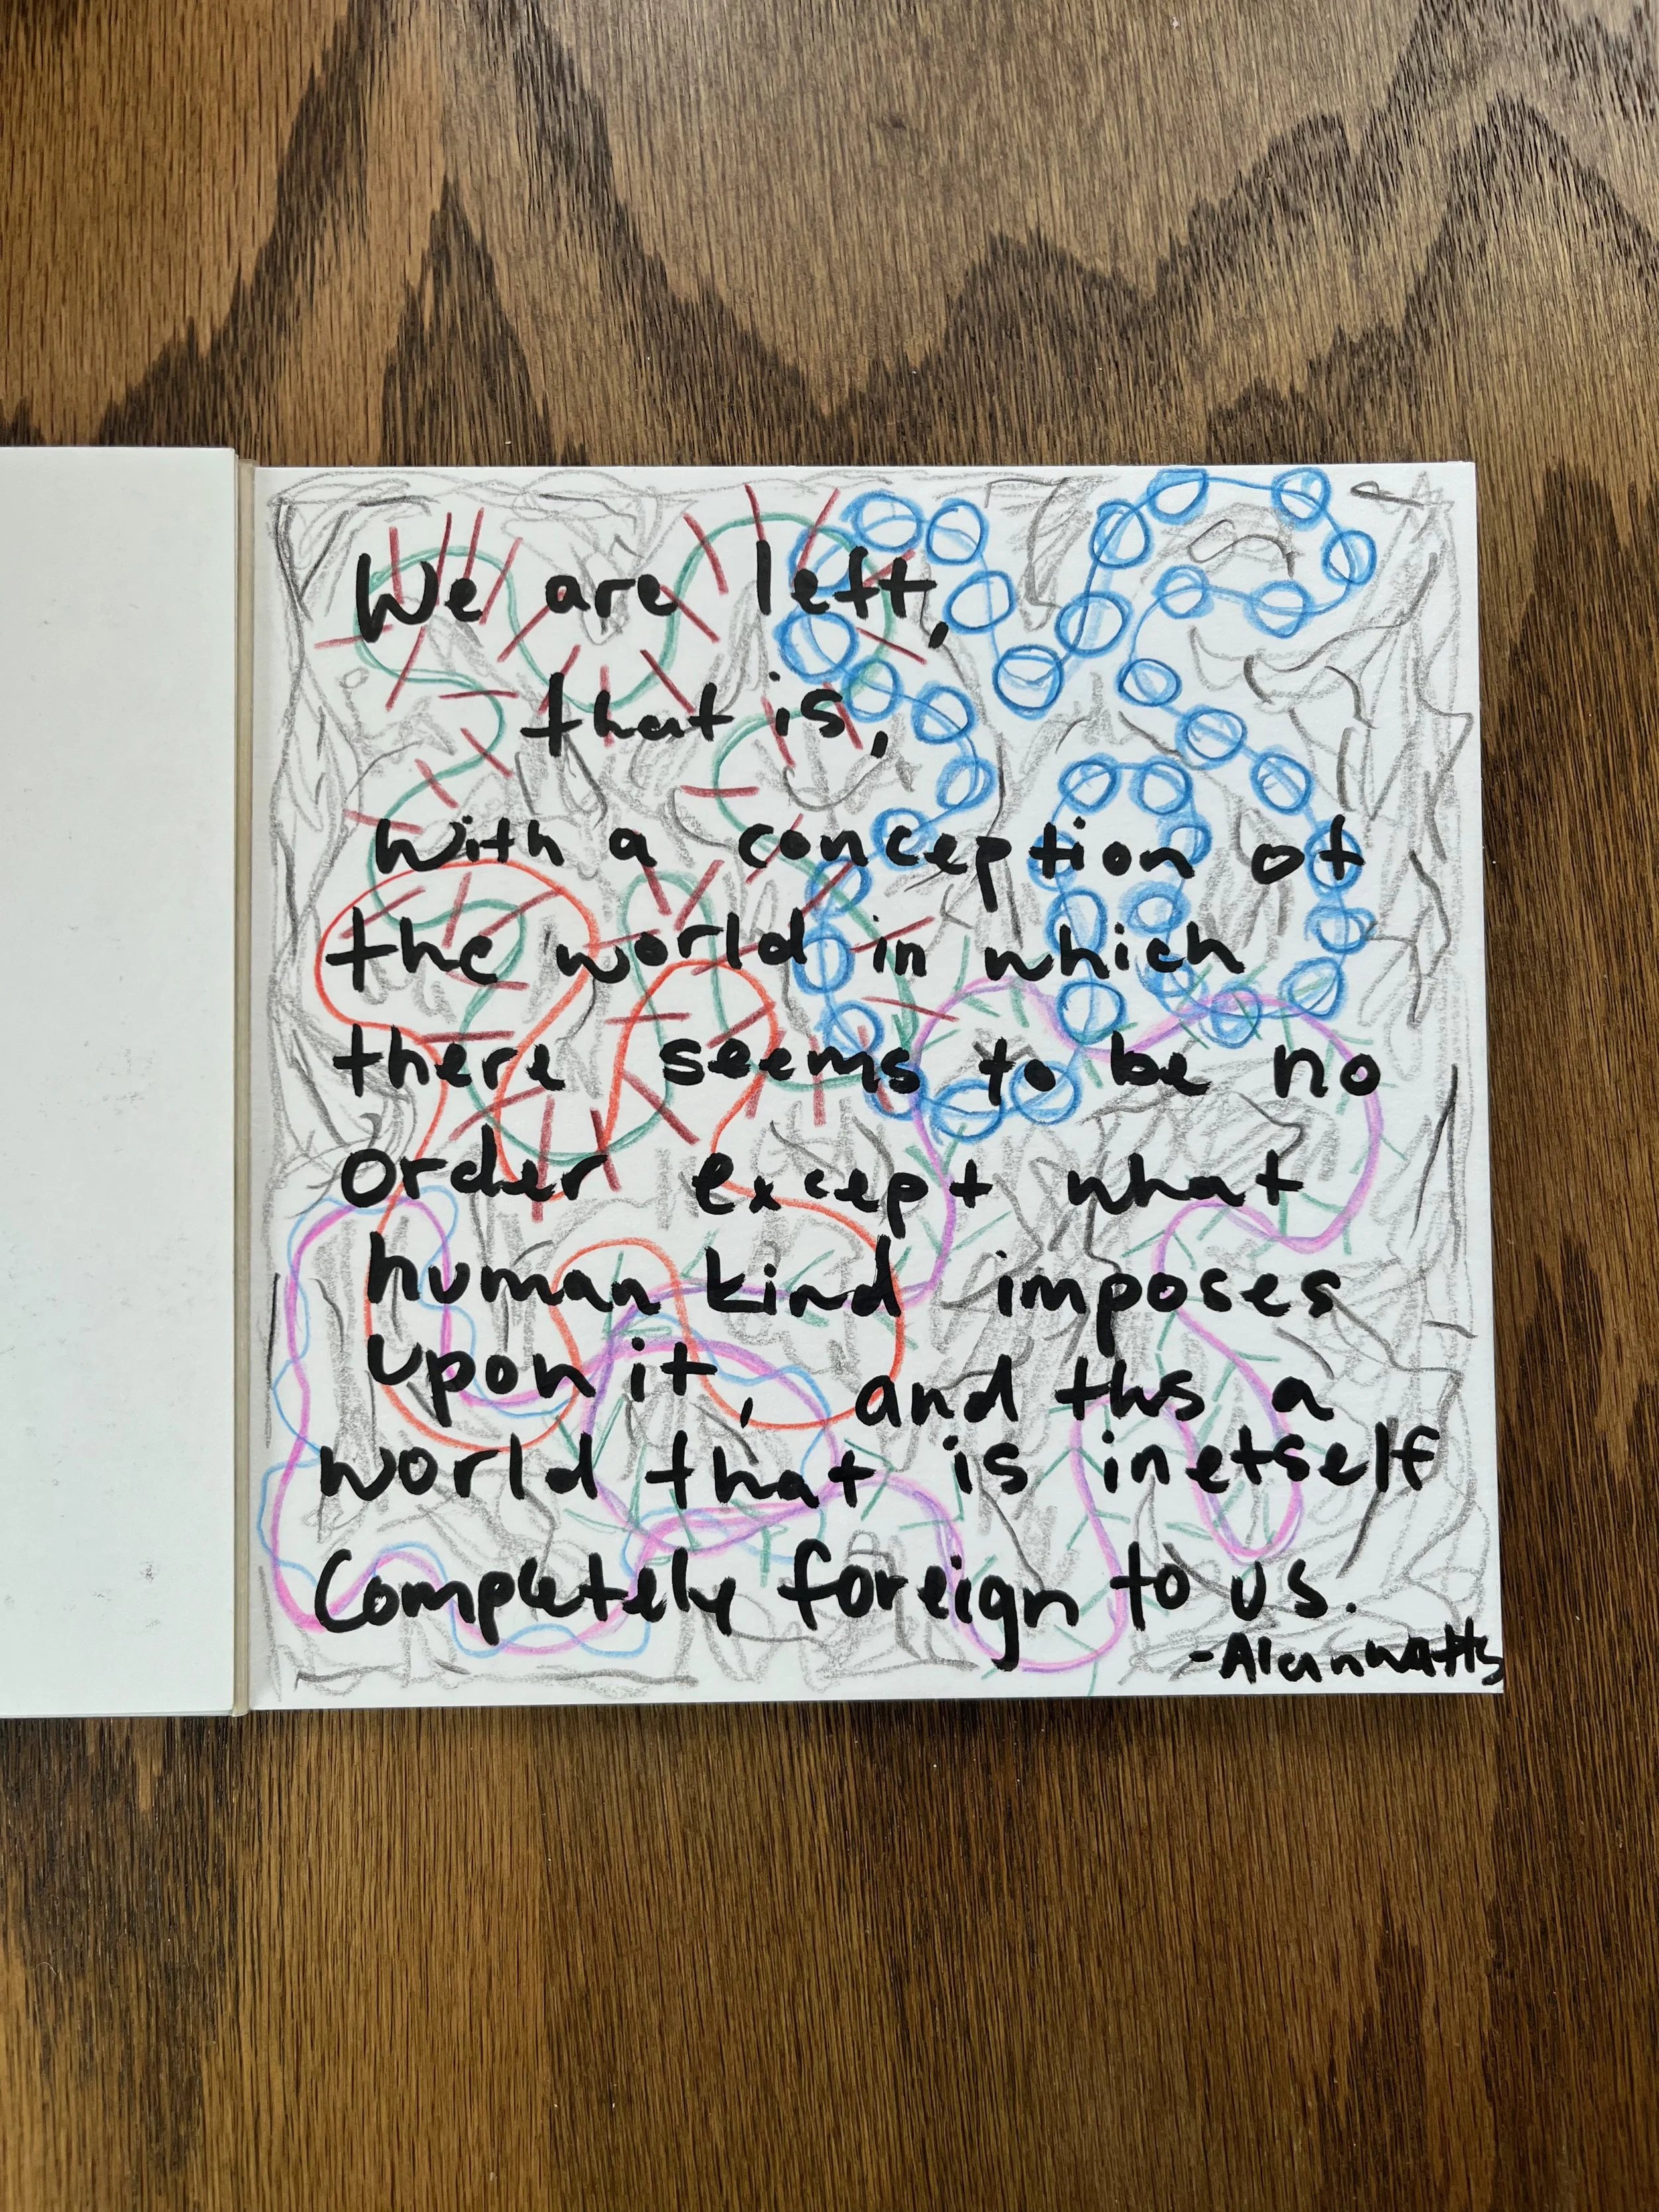 We are left,
that is,
With a conception of
the world in which
there seems to be no
order except what
human kind imposes
upon it, and ths a
world that is inetself
Completely foreign to us.
-Alanwatts